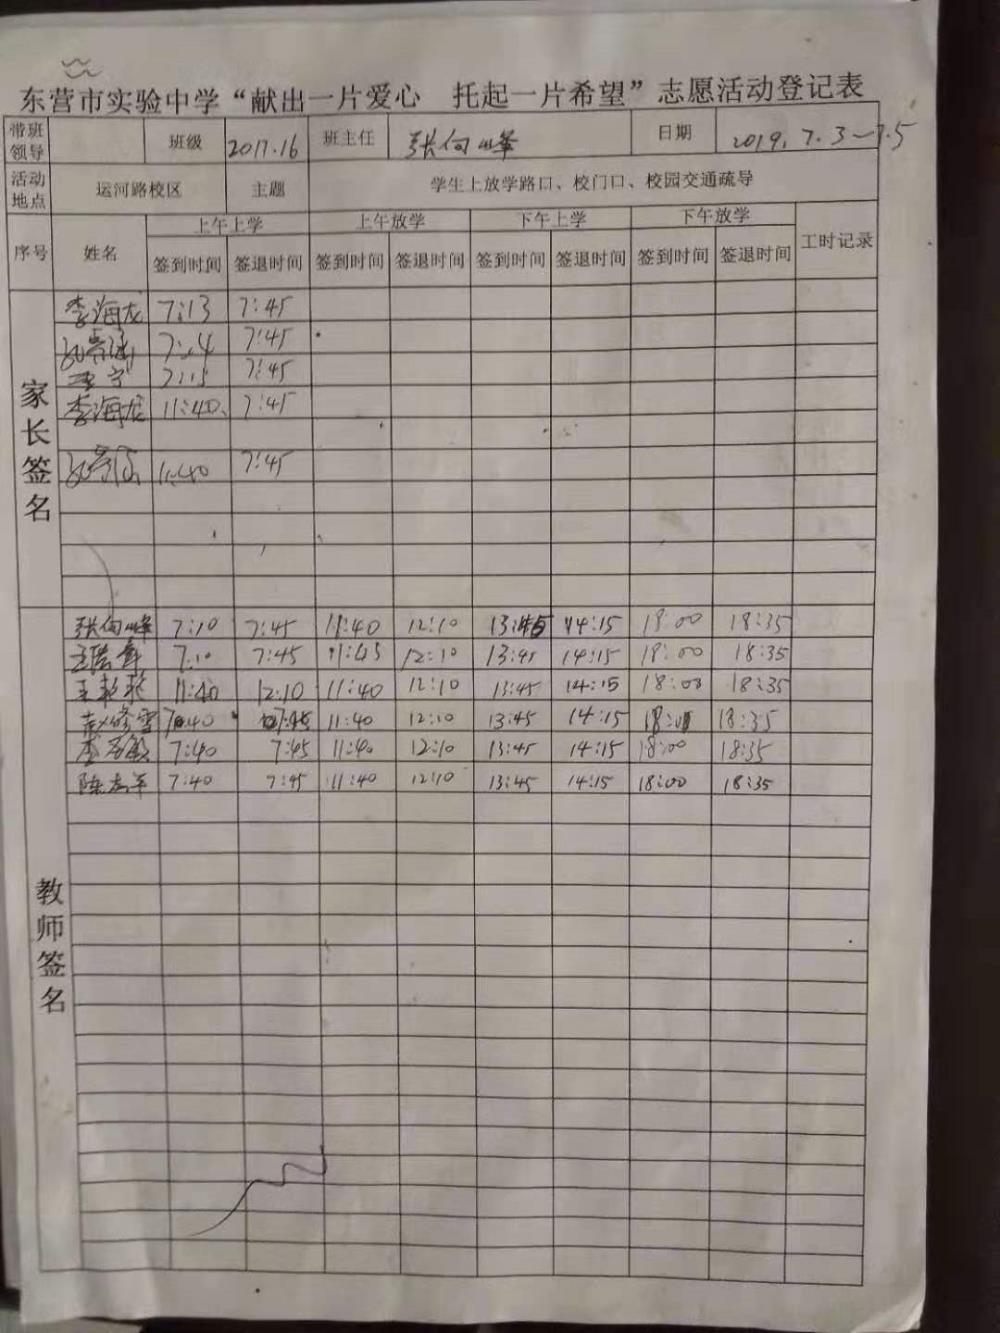 东营市实验中学“献出一片爱心 托起一片希望”志愿活动登记表
带班领导 班级 2017.16 班主任 张向峰 日期 2019.7.3—7.5
活动地点 运河路校区 主题 学生上放学路口、校门口、校园交通疏导
序号 姓名 上午上学 上午放学 下午上学 下午放学 工时记录
签到时间 签退时间 签到时间 签退时间 签到时间 签退时间 签到时间 签退时间
家长签名
李海龙 7:13 7:45
7:14 7:45
王宁 7:15 7:45
李海龙 11:40 7:45
11:40 7:45
教师签名
张向峰 7:10 7:45 11:40 12:10 13:45 14:15 18:00 18:35
7:10 7:45 11:45 12:10 13:45 14:15 18:00 18:35
11:40 12:10 11:40 12:10 13:45 14:15 18:00 18:35
赵修雪 7:40 7:45 11:40 12:10 13:45 14:15 18:00 18:35
7:40 7:45 11:40 12:10 13:45 14:15 18:00 18:35
陈志军 7:40 7:45 11:40 12:10 13:45 14:15 18:00 18:35